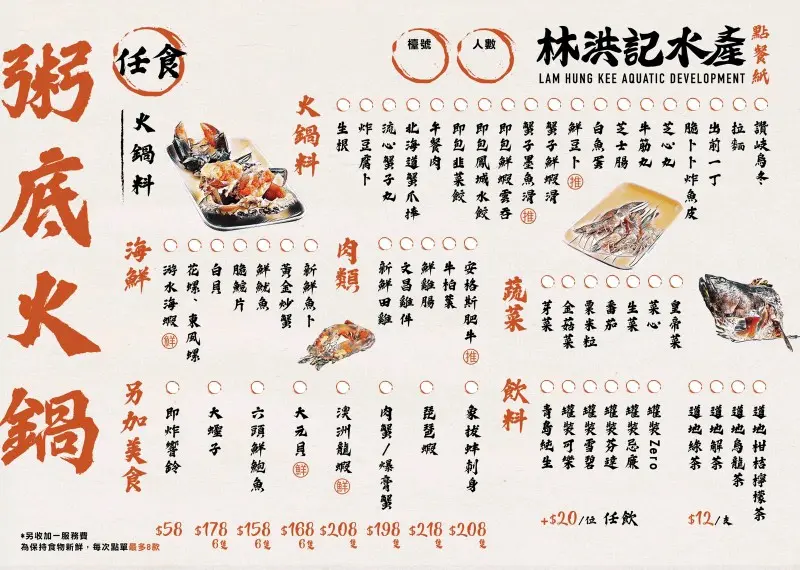 粥底火鍋
任食
火鍋料
檯號
人數
林洪記水產
LAM HUNG KEE AQUATIC DEVELOPMENT
點餐紙
火鍋料
讚岐烏冬
拉麵
出前一丁
脆卜卜炸魚皮
芝心丸
牛筋丸
芝士腸
白魚蛋
鮮豆卜 推
蟹子鮮蝦滑
蟹子墨魚滑 推
即包鮮蝦雲吞
即包鳳城水餃
即包韭菜餃
午餐肉
北海道蟹爪棒
流心蟹子丸
炸豆腐卜
生根
海鮮
新鮮魚卜
黃金炒蟹
鮮魷魚
脆鯇片
白貝
花螺、東風螺
游水海蝦 鮮
肉類
安格斯肥牛 推
牛柏葉
鮮雞腸
文昌雞件
新鮮田雞
蔬菜
皇帝菜
菜心
生菜
番茄
粟米粒
金菇菜
芽菜
另加美食
象拔蚌刺身
$208
隻
琵琶蝦
$218
隻
肉蟹/爆膏蟹
$198
隻
澳洲龍蝦 鮮
$208
隻
大元貝 鮮
$168
6隻
六頭鮮鮑魚
$158
6隻
大蟶子
$178
6隻
即炸響鈴
$58
飲料
道地柑桔檸檬茶
道地烏龍茶
道地解茶
道地綠茶
$12/支
罐裝Zero
罐裝忌廉
罐裝芬達
罐裝雪碧
罐裝可樂
青島純生
+$20/位 任飲
*另收加一服務費
為保持食物新鮮，每次點單最多8款